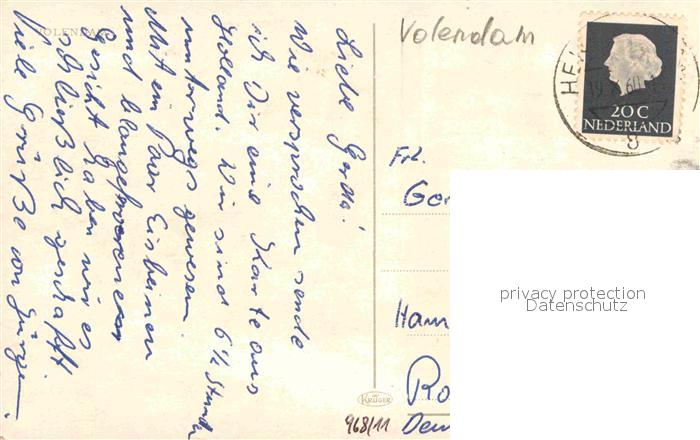 VOLENDAM
Liebe Gerda!
Wie versprochen sende
ich Dir eine Karte aus
Holland. Wir sind 6½ Stunden
unterwegs gewesen.
Mit ein Paar Eisbeinen
und blaugefrorenem
Gesicht haben wir es
schließlich geschafft.
Viele Grüße von Jürgen.
Volendam
HE
19 X 60
8
20 C
NEDERLAND
Frl.
Ger
Ham
Ro
Deu
KRÜGER
968/11
privacy protection
Datenschutz